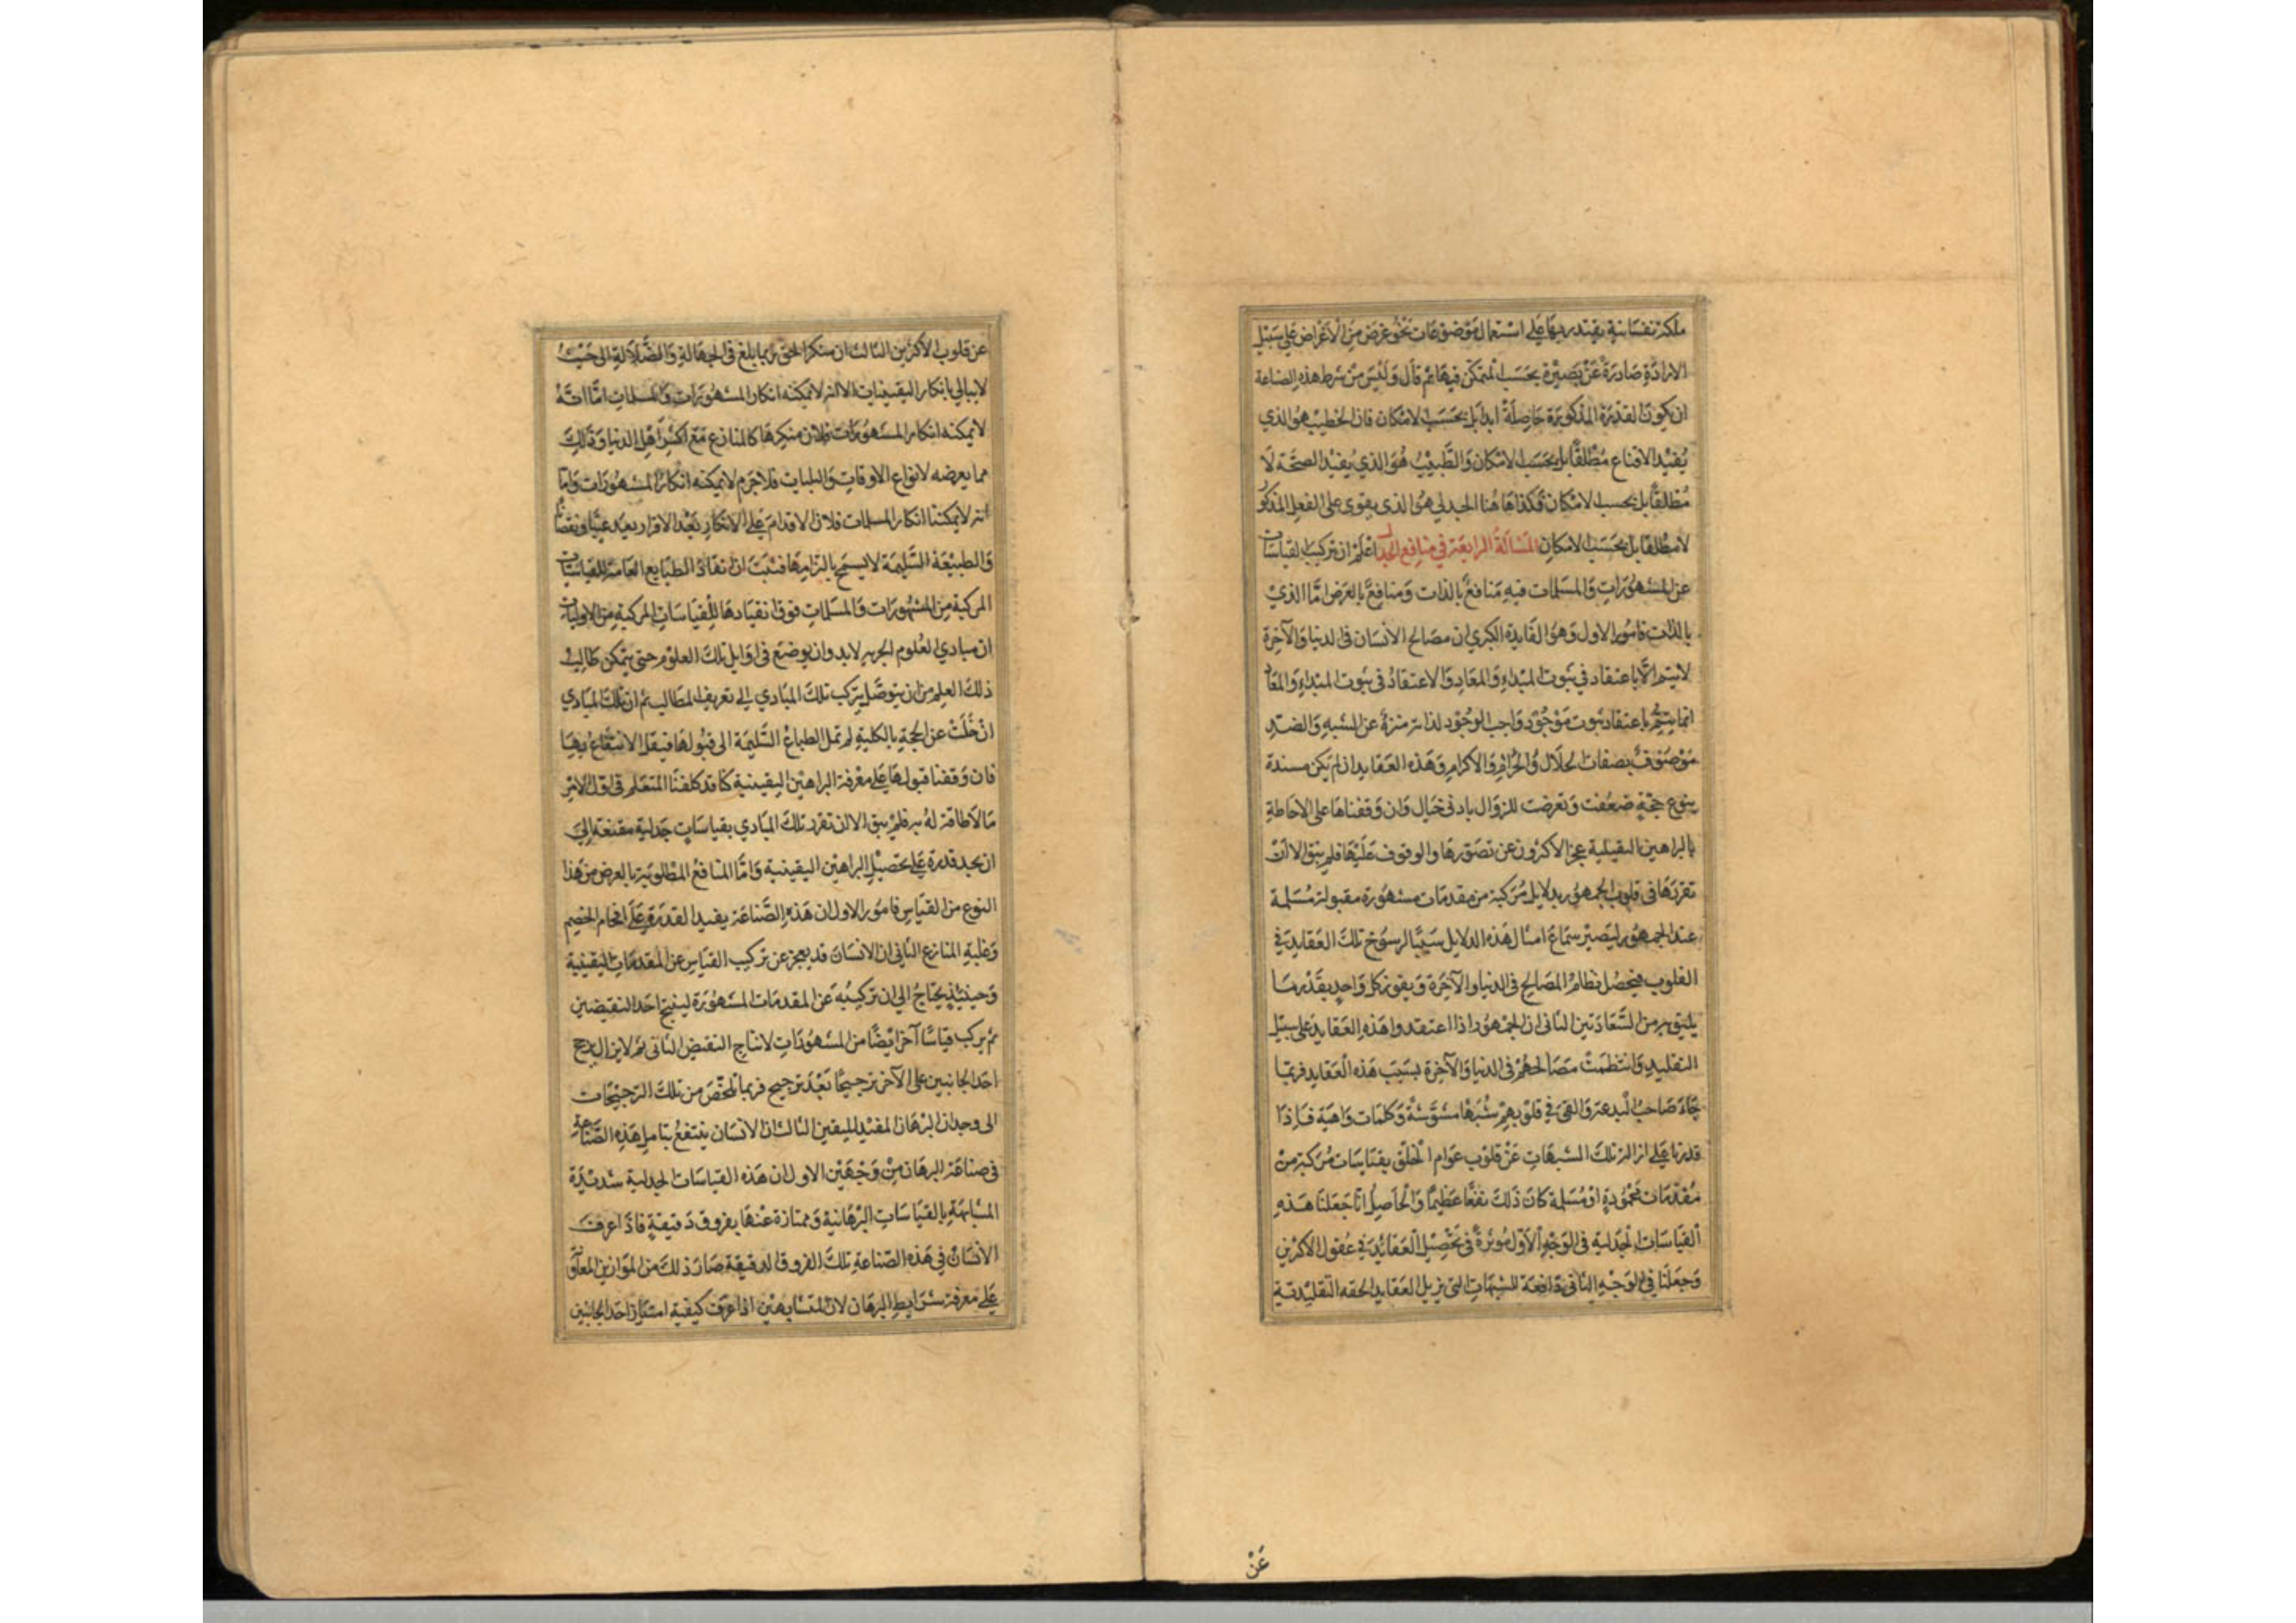 ملكة نفسانية يقتدر بها على استعمال موضوعات نحو غرض من الأغراض على سبيل
الارادة صادرة عن بصيرة بحسب المتمكن فيها ثم قال وليس من شرط هذه الصناعة
ان يكون القدرة المذكورة حاصلة ابدا بل بحسب الامكان فان الخطيب هو الذي
يفيد الاقناع مطلقا بل بحسب الامكان والطبيب هو الذي يفيد الصحة لا
مطلقا بل بحسب الامكان فكذا هاهنا الجدلي هو الذي يقوى على الفعل المذكور
لا مطلقا بل بحسب الامكان المسألة الرابعة في منافع الجدل اعلم ان تركيب القياسات
عن المشهورات والمسلمات فيه منافع بالذات ومنافع بالعرض اما الذي
بالذات فامور الاول وهو الفايدة الكبرى ان مصالح الانسان في الدنيا والآخرة
لا يتم الا باعتقاد في ثبوت المبداء والمعاد والاعتقاد في ثبوت المبداء والمعاد
انما يتم باعتقاد ثبوت موجود واجب الوجود لذاته منزه عن الشبيه والضد
موصوف بصفات الجلال والاكرام وهذه العقايد ان لم يكن مسندة
بنوع حجة ضعفت وتعرضت للزوال بادنى خيال وان وقفناها على الاحاطة
بالبراهين اليقينية عجز الاكثرون عن تصورها والوقوف عليها فلم يبق الا ان
تقررها في قلوب الجمهور بدلايل مركبة من مقدمات مشهورة مقبولة مسلمة
عند الجمهور ليصير سماع امثال هذه الدلايل سببا لرسوخ تلك العقايد في
القلوب فيحصل نظام المصالح في الدنيا والآخرة ويفوز كل واحد بقدر ما
يليق به من السعادتين الثاني ان الجمهور اذا اعتقدوا هذه العقايد على سبيل
التقليد وانتظمت مصالحهم في الدنيا والآخرة بسبب هذه العقايد فربما
جاء صاحب البدعة والقى في قلوبهم شبها مشوشة وكلمات واهية فاذا
قدرنا على ازالة تلك الشبهات عن قلوب عوام الخلق بقياسات مركبة من
مقدمات محمودة او مسلمة كان ذلك نفعا عظيما والحاصل انا جعلنا هذه
القياسات الجدلية في الوجه الاول مؤثرة في تحصيل العقائد في عقول الاكثرين
وجعلنا في الوجه الثاني دافعة للشبهات التي تزيل العقايد الحقه التقليدية
عن
عن قلوب الاكثرين الثالث ان منكر الحق ربما بلغ في الجهالة والضلالة الى حيث
لا يبالي بانكار اليقينيات الا انه لا يمكنه انكار المشهورات والمسلمات اما انه
لا يمكنه انكار المشهورات فلان منكرها كالمنازع مع اكثر اهل الدنيا وذلك
مما يعرضه لانواع الاوقات والبليات فلا جرم لا يمكنه انكار المشهورات واما
انه لا يمكننا انكار المسلمات فلان الاقدام على الانكار بعد الاقرار يعد عيبا ونقصا
والطبيعة السليمة لا يسمح بالتزامها فثبت ان انقياد الطبايع العامة للقياسات
المركبة من المشهورات والمسلمات فوق انقيادها للقياسات المركبة من الاوليات
ان مبادي العلوم لابد وان يوضع في اوايل تلك العلوم حتى يتمكن طالب
ذلك العلم من ان يتوصل بتركب تلك المبادي الى تعريف المطالب ثم ان تلك المبادي
ان خلت عن الحجة بالكلية لم تمل الطباع السليمة الى قبولها فيقل الانتفاع بها
فان وقفنا قبولها على معرفة البراهين اليقينية كنا قد كلفنا المتعلم في اول الامر
ما لا طاقة له به فلم يبق الا ان تقرر تلك المبادي بقياسات جدلية مقنعة الى
ان يجد قدرة على تحصيل البراهين اليقينية واما المنافع المطلوبة بالعرض من هذا
النوع من القياس فامور الاول ان هذه الصناعة يفيد القدرة على افحام الخصم
وغلبة المنازع الثاني ان الانسان قد يعجز عن تركيب القياس عن المقدمات اليقينية
وحينئذ يحتاج الى ان تركيبه عن المقدمات المشهورة لينتج احد النقيضين
ثم يركب قياسا آخر ايضا من المشهورات لانتاج النقيض الثاني ثم لا يزال يرجح
احد الجانبين على الآخر ترجيحا بعد ترجيح فربما تلخص من تلك الترجيحات
الى وجدان البرهان المفيد لليقين الثالث ان الانسان ينتفع بتامل هذه الصناعة
في صناعة البرهان من وجهين الاول ان هذه القياسات الجدلية شديدة
المشابهة بالقياسات البرهانية وممتازة عنها بفروق دقيقة فاذا عرف
الانسان في هذه الصناعة تلك الفروق الدقيقة صار ذلك من الموازين المعاونة
على معرفة شرايط البرهان لان المتشابهين اذا عرف كيفية امتياز احد الجانبين